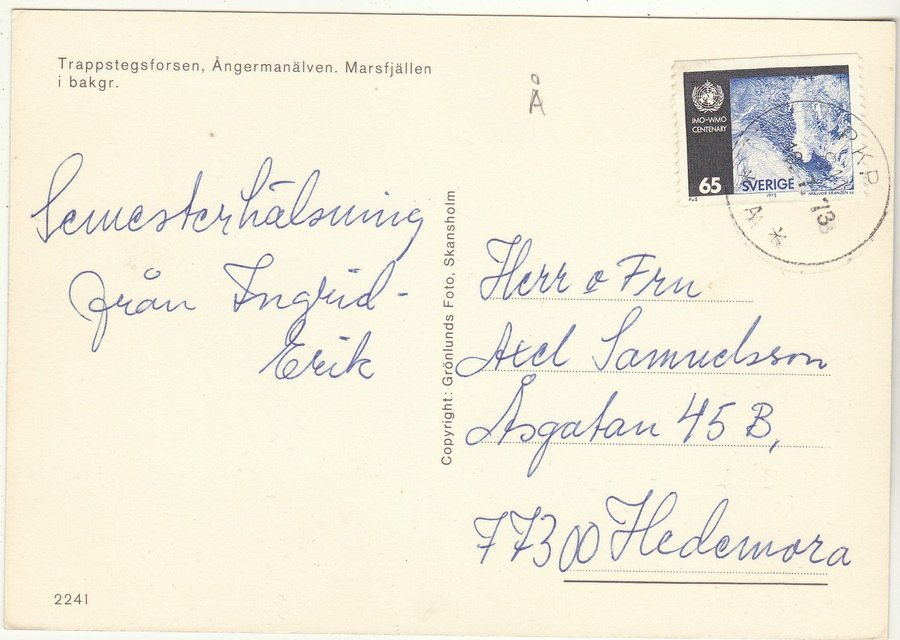 Trappstegsforsen, Ångermanälven. Marsfjällen
i bakgr.
Å
IMO-WMO
CENTENARY
65
SVERIGE
1973
Semesterhälsning
från Ingrid-
Erik
Copyright: Grönlunds Foto, Skansholm
Herr o Fru
Axel Samuelsson
Åsgatan 45 B,
77300 Hedemora
2241